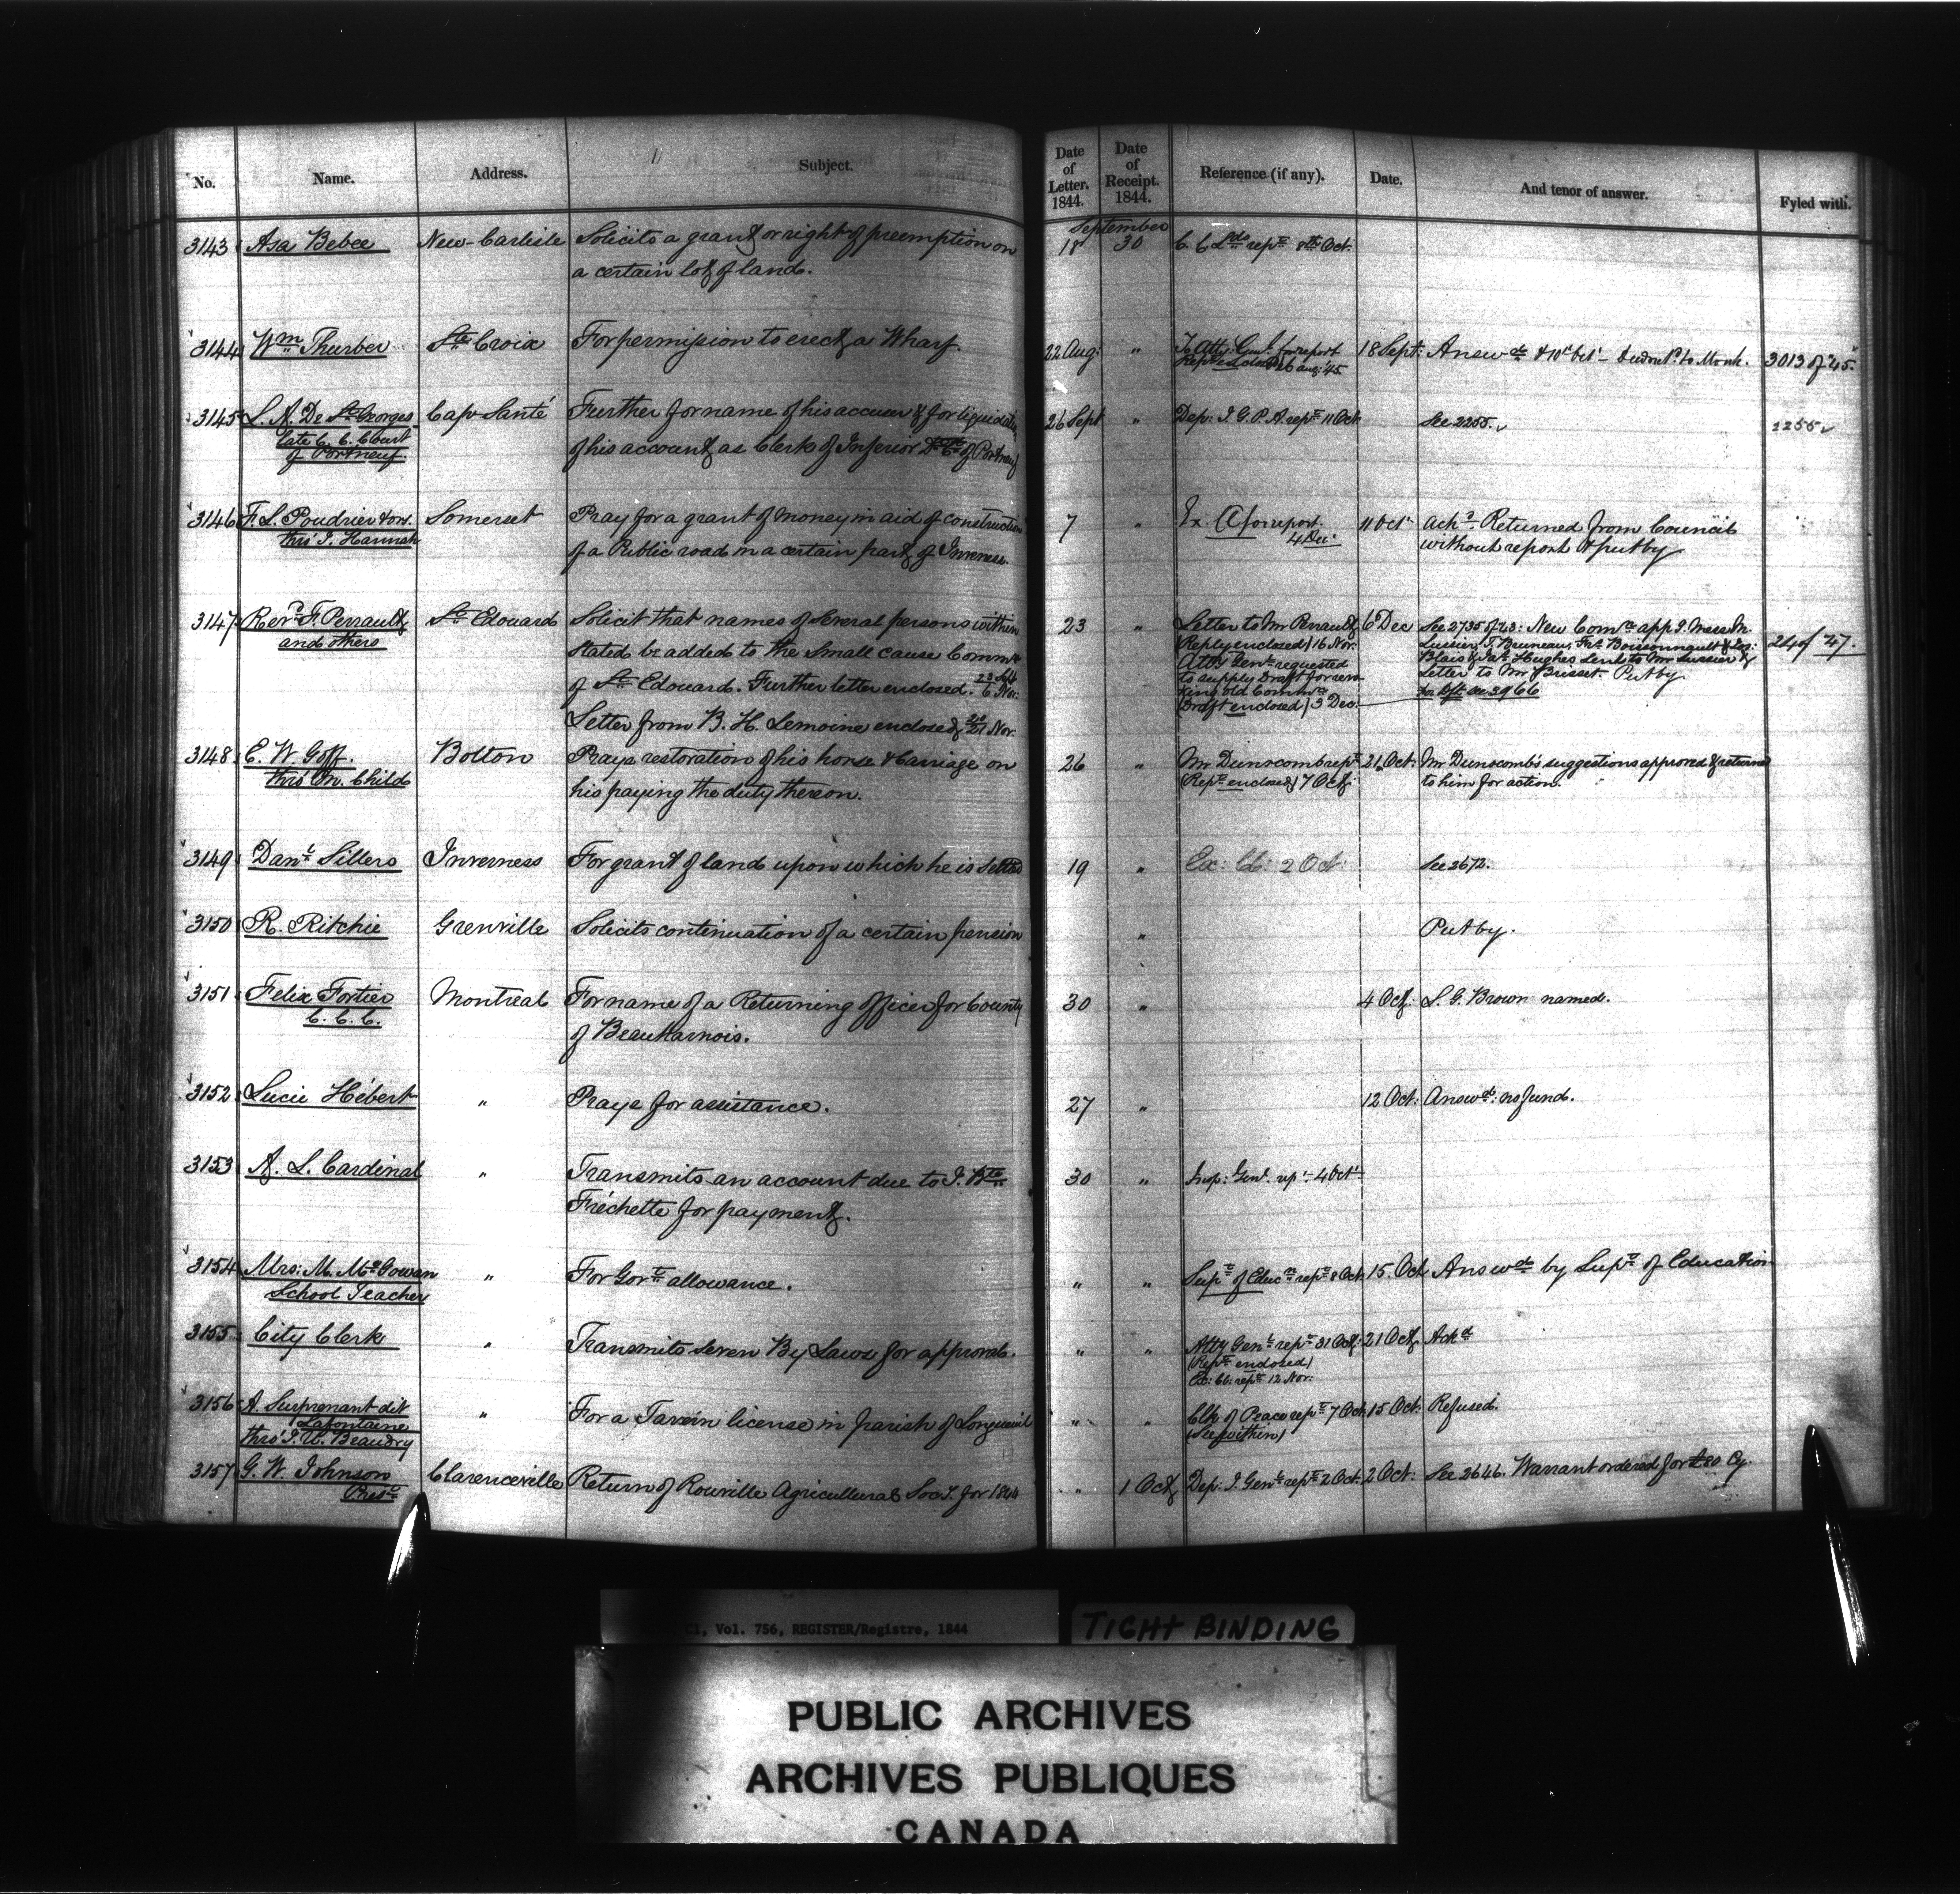 No. Name. Address. Subject. Date of Letter. 1844. Date of Receipt. 1844. Reference (if any). Date. And tenor of answer. Fyled with.
September
3143 Asa Bebee New-Carlisle Solicits a grant or right of preemption on 18 30 C. C. Lds rept 8th Oct:
a certain lot of land.
3144 Wm Thurber Ste Croix For permission to erect a Wharf. 22 Aug: " To Atty: Genl. for report 18 Sept: Answd & 10th Oct - 3013 of '45.
26 Aug: '45.
3145 L. A. De St Georges Cap Santé Further for name of his accuser & for liquidation 26 Sept " Dep: I. G. P. A. rept 11 Oct: See 2255. 2255
late C. C. Court of his account as Clerk of Inferior Dt Ct of Portneuf
of Portneuf.
3146 F. L. Poudrier & ors. Somerset Pray for a grant of money in aid of construction 7 " Ex. C for report. 11 Oct: Ackd. Returned from Council
thro' J. Hannah of a Public road in a certain part of Inverness. 4 Dec: without report & put by
3147 Revd F. Perrault St Edouard Solicit that names of several persons within 23 " Letter to Mr Perrault 6 Dec See 2735 of 43: New Comn app. g. Messrs M.
and others stated be added to the Small cause Commn (Reply enclosed) 16 Nov: Lussier, T. Bruneau, Frs. Boissonnault & Jos: 24 of 47.
of St Edouard. Further letter enclosed. 23 Sept 6 Nov: Atty Genl requested Blais & Jas. Hughes Sent to Mr Lussier &
to supply Draft for revo Letter to Mr Brisset. Put by
king old Commn for Dft see 3966
Letter from B. H. Lemoine enclosed 21 Nov: (Draft enclosed) 3 Dec:
3148 C. W. Goff. Bolton Prays restoration of his horse & Carriage on 26 " Mr Dunscomb rept 21 Oct: Mr Dunscomb's suggestions approved & returned
thro' M. Child his paying the duty thereon. (Rept enclosed) 7 Oct: to him for action.
3149 Danl Sillers Inverness For grant of land upon which he is settled 19 " Ex: Cl: 2 Oct: See 2672.
3150 R. Ritchie Grenville Solicits continuation of a certain pension " Put by.
3151 Felix Fortier Montreal For name of a Returning officer for County 30 " 4 Oct: L. G. Brown named.
C. C. C. of Beauharnois.
3152 Lucie Hébert " Prays for assistance. 27 " 12 Oct: Answd: no fund.
3153 A. L. Cardinal " Transmits an account due to J. Bte 30 " Insp: Genl. rept. 4 Oct
Fréchette for payment.
3154 Mrs: M. McGowan " For Govt allowance. " " Supt of Educn rept 8 Oct: 15 Oct Answd by Supt of Education
School Teacher
3155 City Clerk " Transmits seven By Laws for approval. " " Atty Genl rept 31 Oct: 21 Oct Ackd
(Rept enclosed)
Ex: Cl: rept 12 Nov:
3156 A. Surprenant dit " For a Tavern license in parish of Longueuil " " Clk of Peace rept 7 Oct: 15 Oct: Refused.
Lafontaine (See within)
thro' J. U. Beaudry
3157 G. W. Johnson Clarenceville Return of Rouville Agricultural Socy. for 1844 " 1 Oct Dep: I. Genl rept 2 Oct: 2 Oct: See 2646. Warrant ordered for £80 Cy.
Prest
C1, Vol. 756, REGISTER/Registre, 1844
TIGHT BINDING
PUBLIC ARCHIVES
ARCHIVES PUBLIQUES
CANADA